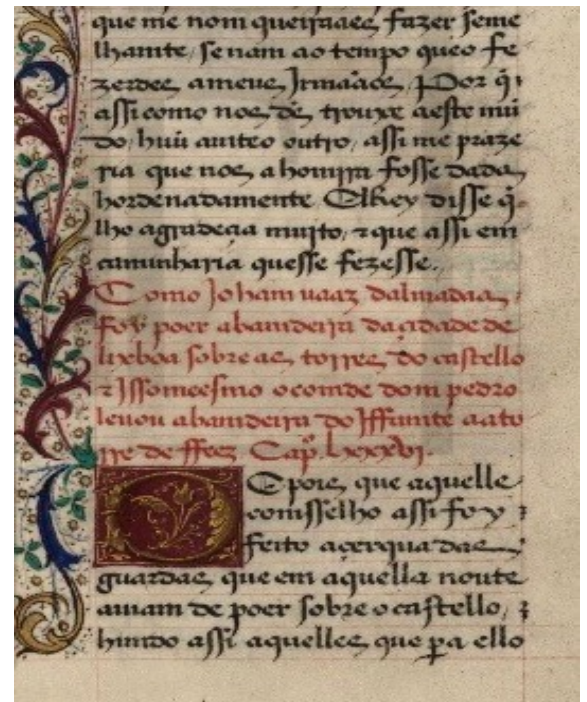 que me nom queiraaes fazer seme
lhante, senam ao tempo queo fe
zerdes ameus Jrmaãos. Por q̃
assi como nos ds̃ trouxe aeste mũ
do, huũ ante o outro, assi me praze
ria que nos a honrra fosse dada
hordenadamente. Elrey disse q̃
lho agradecia mujto, ⁊ que assi em
caminharia quesse fezesse.
Como Joham uaaz dalmadaa,
foy poer abandeira dacidade de
lixboa sobre as torres do castello
⁊ Jssomeesmo oconde dom pedro
leuou abandeira do Jffante aa to
rre de ffez Cap.º Lxxxvj.
Depois que aquelle
consselho assi foy
feito acerqua das
guardas, que em aquella noute
auiam de poer sobre o castello,
hindo assi aquelles, que pera ello